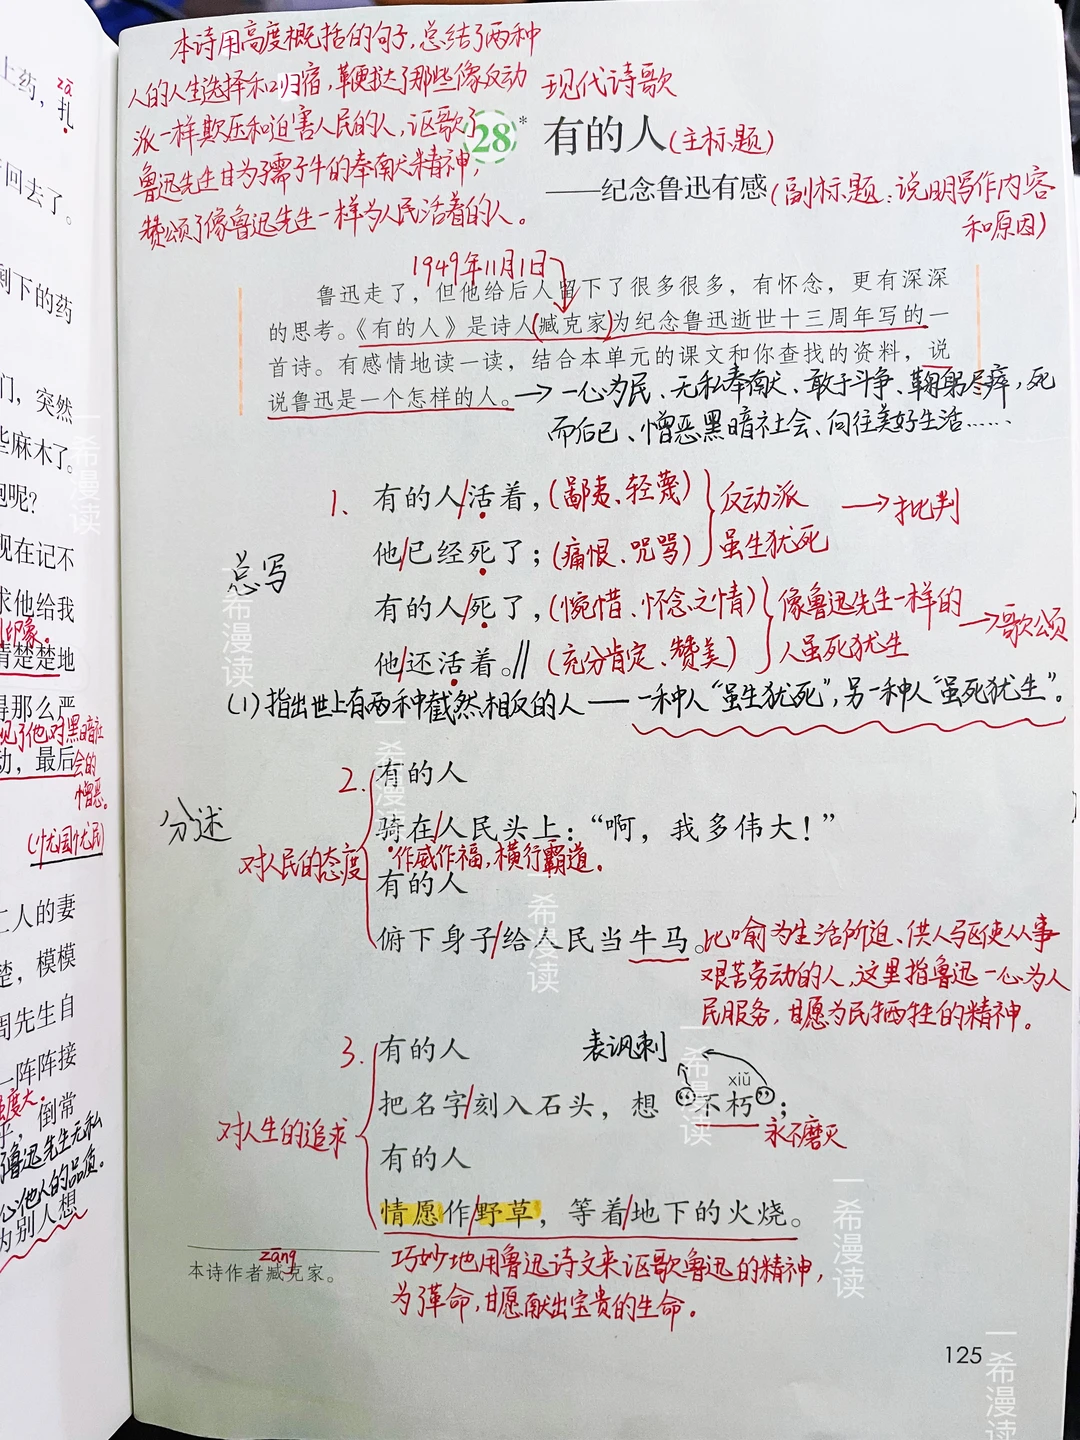 上药，
zā
扎
回去了。
剩下的药
们，突然
些麻木了。
包呢？
现在记不
求他给我
印象。
清楚楚地
得那么严
现了他对黑暗社
动，最后
会的
憎恶。
(忧国忧民)
二人的妻
楚，模模
周先生自
一阵阵接
强度大。
，倒常
了鲁迅先生无私
心他人的品质。
为别人想
本诗用高度概括的句子，总结了两种
人的人生选择和归宿，鞭挞了那些像反动
派一样欺压和迫害人民的人，讴歌了
鲁迅先生甘为孺子牛的奉献精神，
赞颂了像鲁迅先生一样为人民活着的人。
现代诗歌
28* 有的人(主标题)
——纪念鲁迅有感(副标题：说明写作内容
和原因)
1949年11月1日
鲁迅走了，但他给后人留下了很多很多，有怀念，更有深深
的思考。《有的人》是诗人(臧克家)为纪念鲁迅逝世十三周年写的一
首诗。有感情地读一读，结合本单元的课文和你查找的资料，说
说鲁迅是一个怎样的人。→一心为民、无私奉献、敢于斗争、鞠躬尽瘁，死
而后已、憎恶黑暗社会、向往美好生活……
1. 有的人/活着，(鄙夷、轻蔑) 反动派 →批判
他/已经死了；(痛恨、咒骂) 虽生犹死
总写
有的人/死了，(惋惜、怀念之情) 像鲁迅先生一样的 →歌颂
他/还活着。// (充分肯定、赞美) 人虽死犹生
(1)指出世上有两种截然相反的人——一种人“虽生犹死”，另一种人“虽死犹生”。
2. 有的人
分述
骑在/人民头上：“啊，我多伟大！”
对人民的态度
作威作福，横行霸道。
有的人
俯下身子/给人民当牛马。比喻为生活所迫、供人驱使从事
艰苦劳动的人，这里指鲁迅一心为人
民服务，甘愿为民牺牲的精神。
3. 有的人
表讽刺
xiǔ
把名字/刻入石头，想“不朽”；
对人生的追求
永不磨灭
有的人
情愿作/野草，等着/地下的火烧。
巧妙地用鲁迅诗文来讴歌鲁迅的精神，
为了革命，甘愿献出宝贵的生命。
zāng
本诗作者臧克家。
125
一希漫读
一希漫读
一希漫读
一希漫读
一希漫读
一希漫读
一希漫读